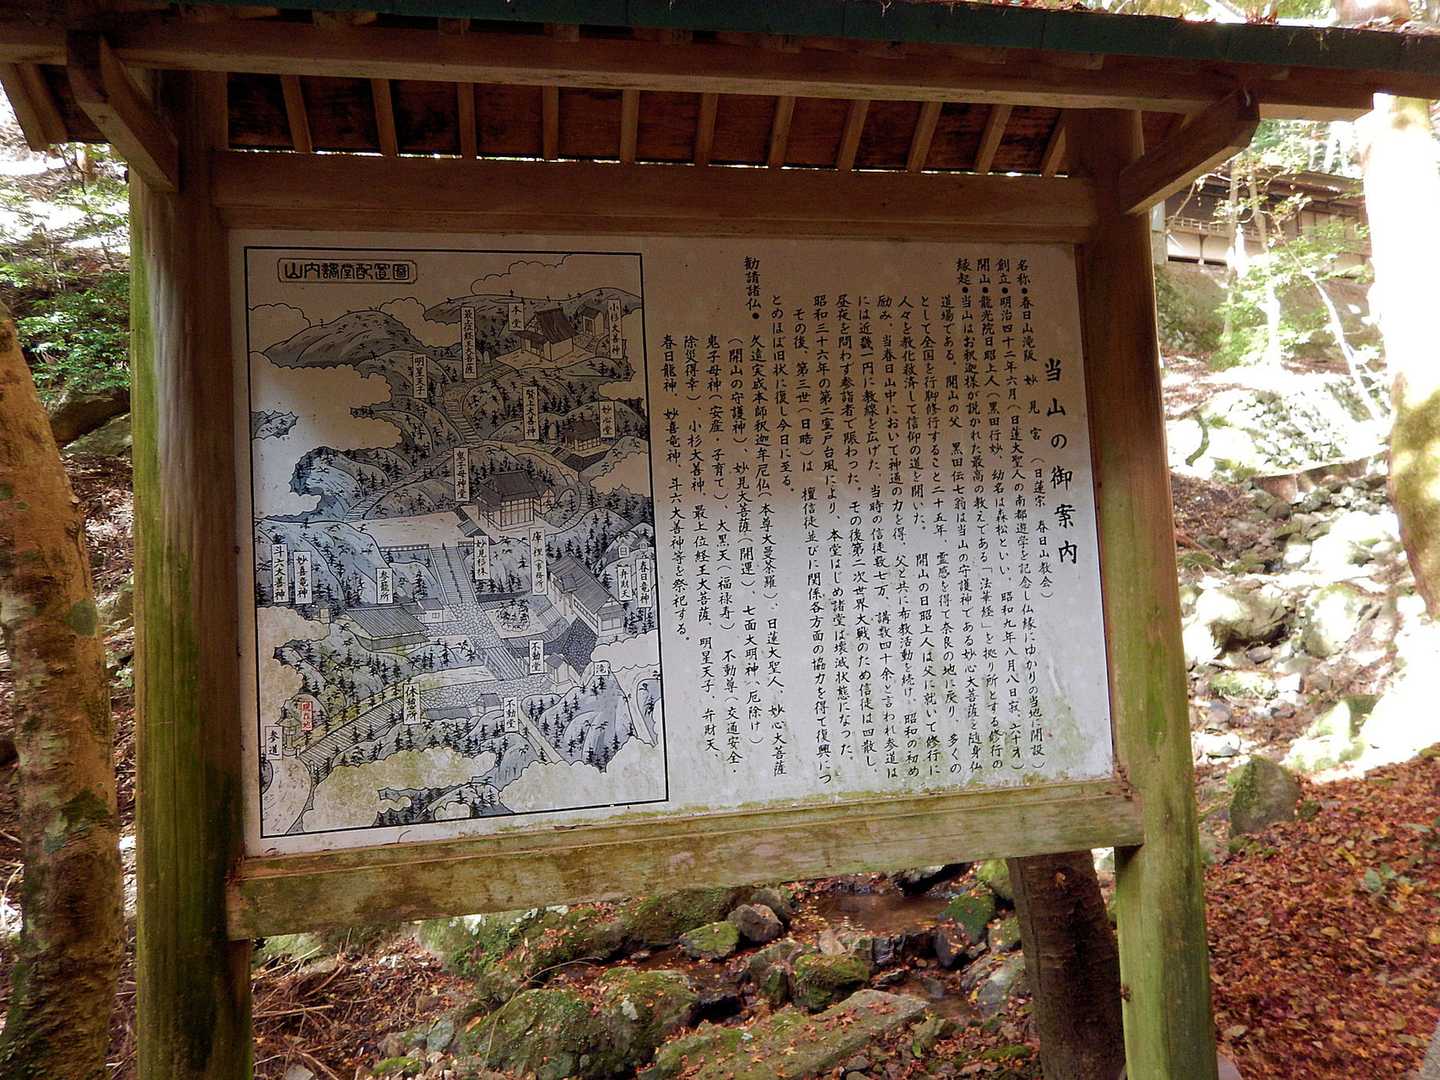 当山の御案内
名称●春日山滝阪 妙見宮(日蓮宗 春日山教会)
創立●明治四十二年六月(日蓮大聖人の南都遊学を記念し仏縁にゆかりの当地に開設)
開山●龍光院日昭上人(黒田行妙、幼名は森松といい、昭和九年八月八日寂、六十才)
縁起●当山はお釈迦様が説かれた最高の教えである「法華経」を拠り所とする修行の
道場である。開山の父 黒田伝七翁は当山の守護神である妙心大菩薩を随身仏
として全国を行脚修行すること二十五年 霊感を得て奈良の地に戻り、多くの
人々を教化救済して信仰の道を開いた。 開山の日昭上人は父に就いて修行に
励み、当春日山中において神通の力を得、父と共に布教活動を続け、昭和の初め
には近畿一円に教線を広げた。当時の信徒数七万、講数四十余と言われ参道は
昼夜を問わず参詣者で賑わった。その後第二次世界大戦のため信徒は四散し、
昭和三十六年の第二室戸台風により、本堂はじめ諸堂は壊滅状態になった。
その後、第三世(日晧)は 檀信徒並びに関係各方面の協力を得て復興につ
とめほぼ旧状に復し今日に至る。
勧請諸仏●久遠実成本師釈迦牟尼仏(本尊大曼荼羅)、日蓮大聖人、妙心大菩薩
(開山の守護神)、妙見大菩薩(開運)、七面大明神(厄除け)
鬼子母神(安産・子育て)、大黒天(福禄寿)、不動尊(交通安全・
除災得幸)、小杉大善神、最上位経王大菩薩、明星天子、弁財天、
春日龍神、妙喜竜神、斗六大善神等を祭祀する。
山内諸堂配置図
小杉大善神
本堂
最上位経王大菩薩
明星天子
賢王大善神
妙心堂
鬼子母神堂
妙見杉株
庫裡(事務所)
春日竜神
弁財天
参籠所
妙喜竜神
斗六大善神
不動堂
滝
不動堂
休憩所
現在地
参道